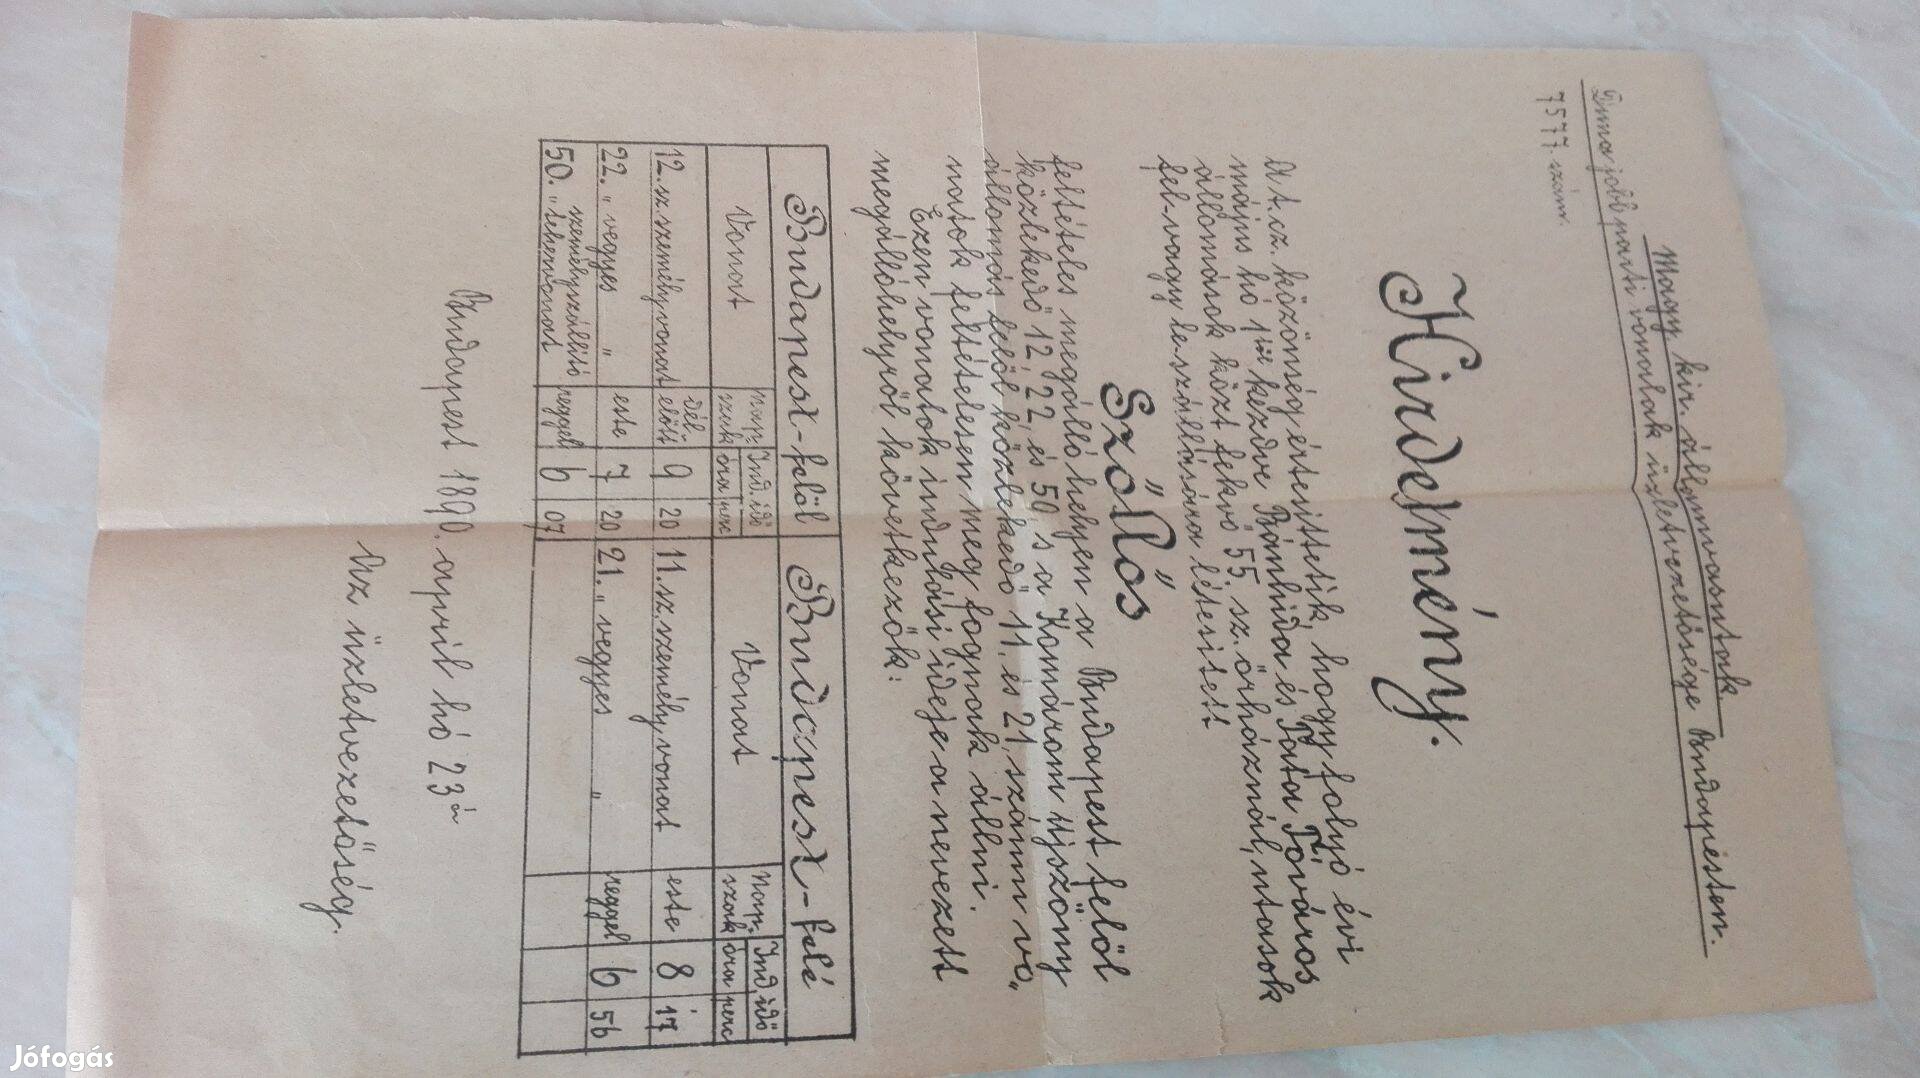 Magy. kir. államvasutak.
Duna jobbparti vonalak üzletvezetősége Budapesten.
7577. szám.
Hirdetmény.
A t. cz. közönség értesittetik, hogy folyó évi
május hó 1től kezdve Bánhida és Tata Tóváros
állomások közt fekvő 55. sz. őrháznál, utasok
fel- vagy le-szállására létesitett
Szőllős
feltételes megálló helyen a Budapest felöl
közlekedő 12, 22, és 50 s a Komárom Ujszöny
állomás felöl közlekedő 11. és 21, számu vo„
natok feltételesen meg fognak állni.
Ezen vonatok indulási ideje a nevezett
megállóhelyről következők:
Budapest-felöl Budapest-felé
Vonat Nap: szak Ind. idő óra perc Vonat Nap: szak Ind. idő óra perc
12. sz. személyvonat dél- előtt 9 20 11. sz. személyvonat este 8 17
22. „ vegyes „ este 7 20 21. „ vegyes „ reggel 6 56
50. „ személyszállitó tehervonat reggel 6 07
Budapest 1890. april hó 23án
Az üzletvezetőség.
Jófogás